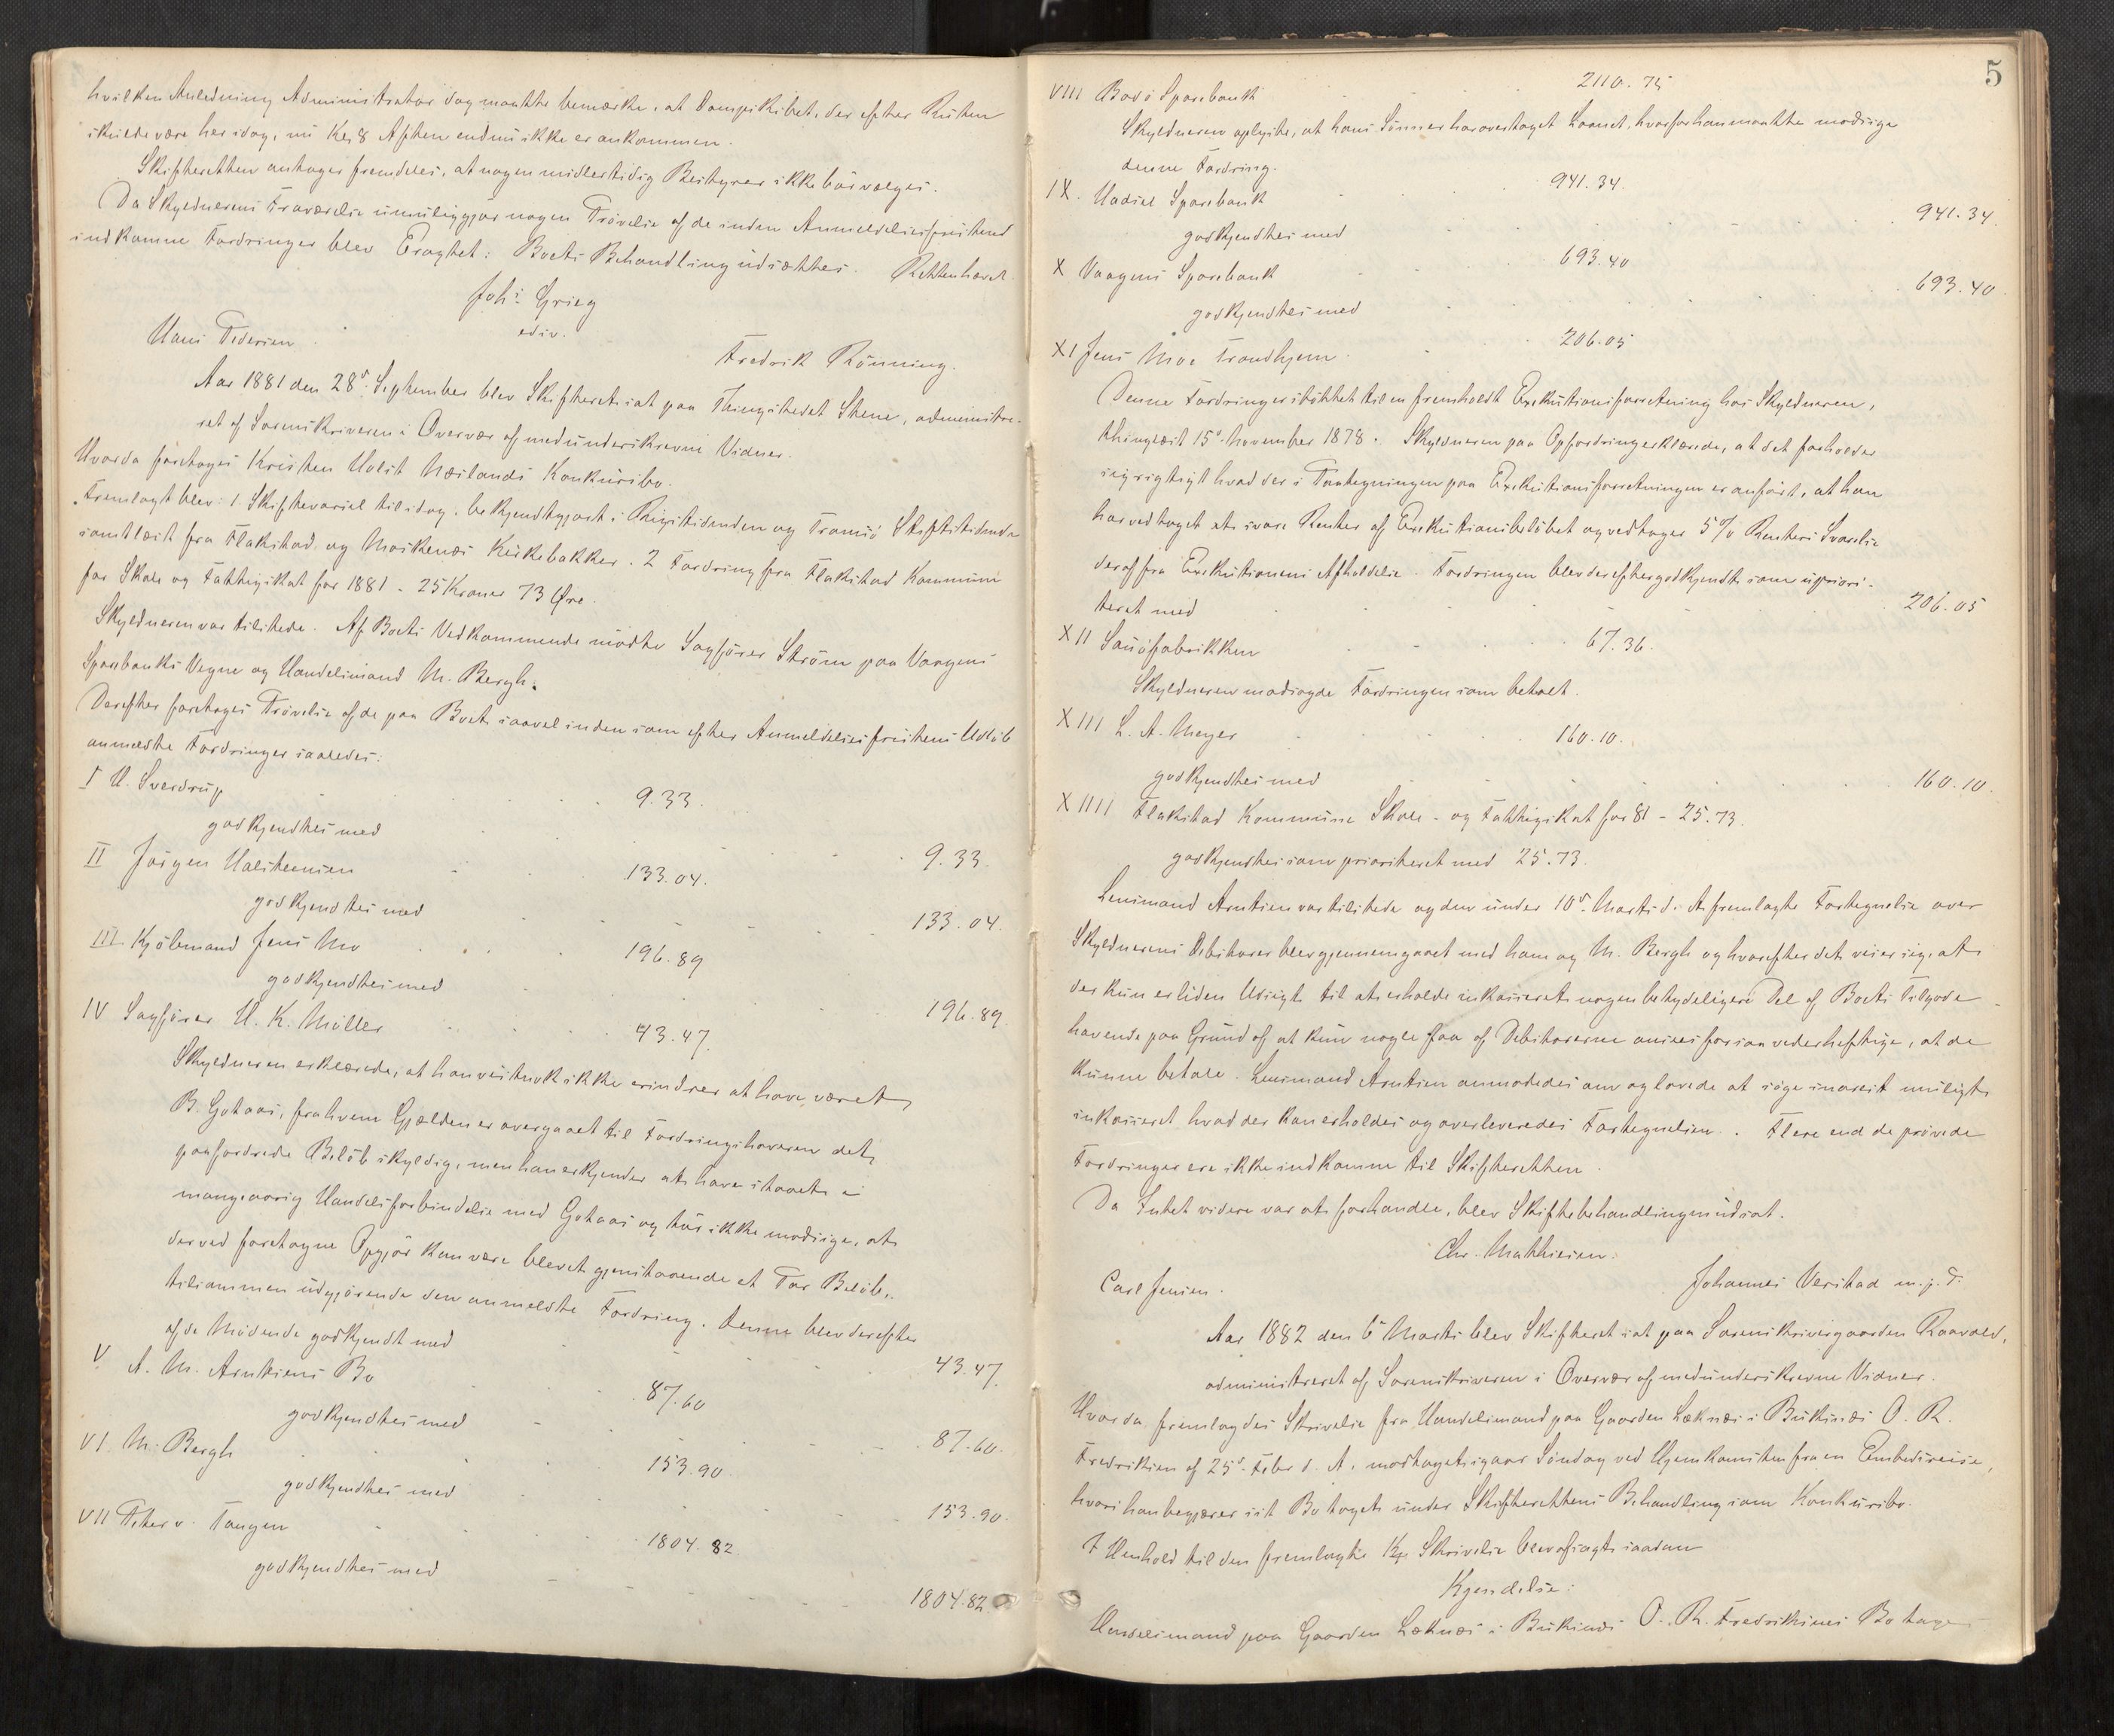 hvilken Anledning Administrator dog maatte bemærke, at Dampskibet, der efter Ruten
skulde være her idag, nu Kl. 8 Aften endnu ikke er ankommen.
Skifteretten antages fremdeles, at nogen midlertidig Bestyrer ikke bør vælges.
Da Skyldnerens Fraværelse umuliggjør nogen Prøvelse af de inden Anmeldelsesfristens
indkomne Fordringer blev Eragtet: Boets Behandling udsættes. Retten hævet.
Johs Grieg
edsv.
Hans Pedersen
Fredrik Rönning.
Aar 1881 den 28d September blev Skifteret sat paa Thingstedet Stene, administre-
ret af Sorenskriveren i Overvær af medunderskrevne Vidner.
Hvorda foretoges Kristen Holst Næslands Konkursbo.
Fremlagt blev: 1. Skiftevarsel til idag, bekjendtgjort i Rigstidenden og Tromsö Stiftstidende
samt læst fra Flakstad og Moskenæs Kirkebakker. 2 Fordring fra Flakstad Kommune
for Skole og Fattigskat for 1881 - 25 Kroner 73 Øre.
Skyldneren var tilstede. Af Boets Vedkommende mödte Sagförer Ström paa Vaagens
Sparebanks Vegne og Handelsmand M. Bergh.
Derefter foretoges Prövelse af de paa Boet saavel inden som efter Anmeldelsesfristens Udlöb
anmeldte Fordringer saaledes:
I H. Sverdrup 9.33.
godkjendtes med 9.33.
II Jörgen Halsteensen 133.04.
godkjendtes med 133.04.
III Kjöbmand Jens Mo 196.89
godkjendtes med 196.89
IV Sagförer H. K. Möller 43.47.
Skyldneren erklærede, at han vistnok ikke erindrer at have været
B. Gotaas, fra hvem Gjælden er overgaaet til Fordringshaveren det
paafordrede Belöb skyldig, men han erkjender at have staaet i
mangeaarig Handelsforbindelse med Gotaas og tör ikke modsige, at
der ved foretagne Opgjör kan være blevet gjenstaaende et Par Belöb,
tilsammen udgjörende den anmeldte Fordring. Denne blev derefter
af de Mödende godkjendt med 43.47.
V A. M. Arntsens Bo 87.60
godkjendtes med 87.60.
VI. M. Bergh 153.90.
godkjendtes med 153.90.
VII Peter v. Tangen 1804.82.
godkjendtes med 1804.82
5
VIII Bodö Sparebank 2110.75
Skyldneren oplyste, at hans Sönner har overtaget Laanet, hvorfor han maatte modsige
denne Fordring.
IX. Hadsel Sparebank 941.34.
godkjendtes med 941.34.
X Vaagens Sparebank 693.40
godkjendtes med 693.40.
XI Jens Moe Trondhjem 206.05
Denne Fordring er stöttet til en fremholdt Exekutionsforretning hos Skyldneren,
thinglæst 15d November 1878. Skyldneren paa Opfordring erklærede, at det forholder
sig rigtigt hvad der i Paategningen paa Exekutionsforretningen er anfört, at han
har vedtaget at svare Renter af Exekutionsbelöbet og vedtager 5% Renters Svarelse
deraf fra Exekutionens Afholdelse. Fordringen blev derefter godkjendt som upriori-
teret med 206.05
XII Sauöfabrikken 67.36.
Skyldneren modsagde Fordringen som betalt.
XIII L. A. Meyer 160.10.
godkjendtes med 160.10.
XIIII Flakstad Kommune Skole- og Fattigskat for 81 - 25.73.
godkjendtes som prioriteret med 25.73.
Lensmand Arntsen var tilstede og den under 10d Marts d. A. fremlagte Fortegnelse over
Skyldnerens Debitorer blev gjennemgaaet med ham og M. Bergh og hvorefter det viser sig, at
der kun er liden Udsigt til at erholde inkasseret nogen betydeligere Del af Boets Tilgode-
havende paa Grund af at kun nogle faa af Debitorerne ansees for saa vederheftige, at de
kunne betale. Lensmand Arntsen anmodedes om og lovede at söge snarest muligt
inkasseret hvad der kan erholdes og overleveredes Fortegnelsen. Flere end de prövede
Fordringer ere ikke indkomne til Skifteretten.
Da Intet videre var at forhandle, blev Skiftebehandlingen udsat.
Chr. Mathiesen.
Carl Jensen.
Johannes Verstad m. p. P.
Aar 1882 den 6 Marts blev Skifteret sat paa Sorenskrivergaarden Raavold,
administreret af Sorenskriveren i Overvær af medunderskrevne Vidner.
Hvorda fremlagdes Skrivelse fra Handelsmand paa Gaarden Leknæs i Buksnæs O. R.
Fredriksen af 25d Febr d. A. modtaget igaar Söndag ved Hjemkomsten fra en Embedsreise,
hvori han begjærer sit Bo taget under Skifterettens Behandling som Konkursbo.
I Henhold til den fremlagte Skrivelse blev afsagt saadan
Kjendelse:
Handelsmand paa Gaarden Leknæs i Buksnæs O. R. Fredriksens Bo tages